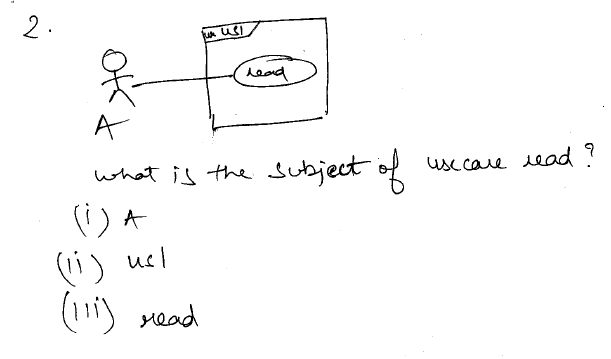 2.
uc us1
read
A
what is the subject of usecase read?
(i) A
(ii) us1
(iii) read